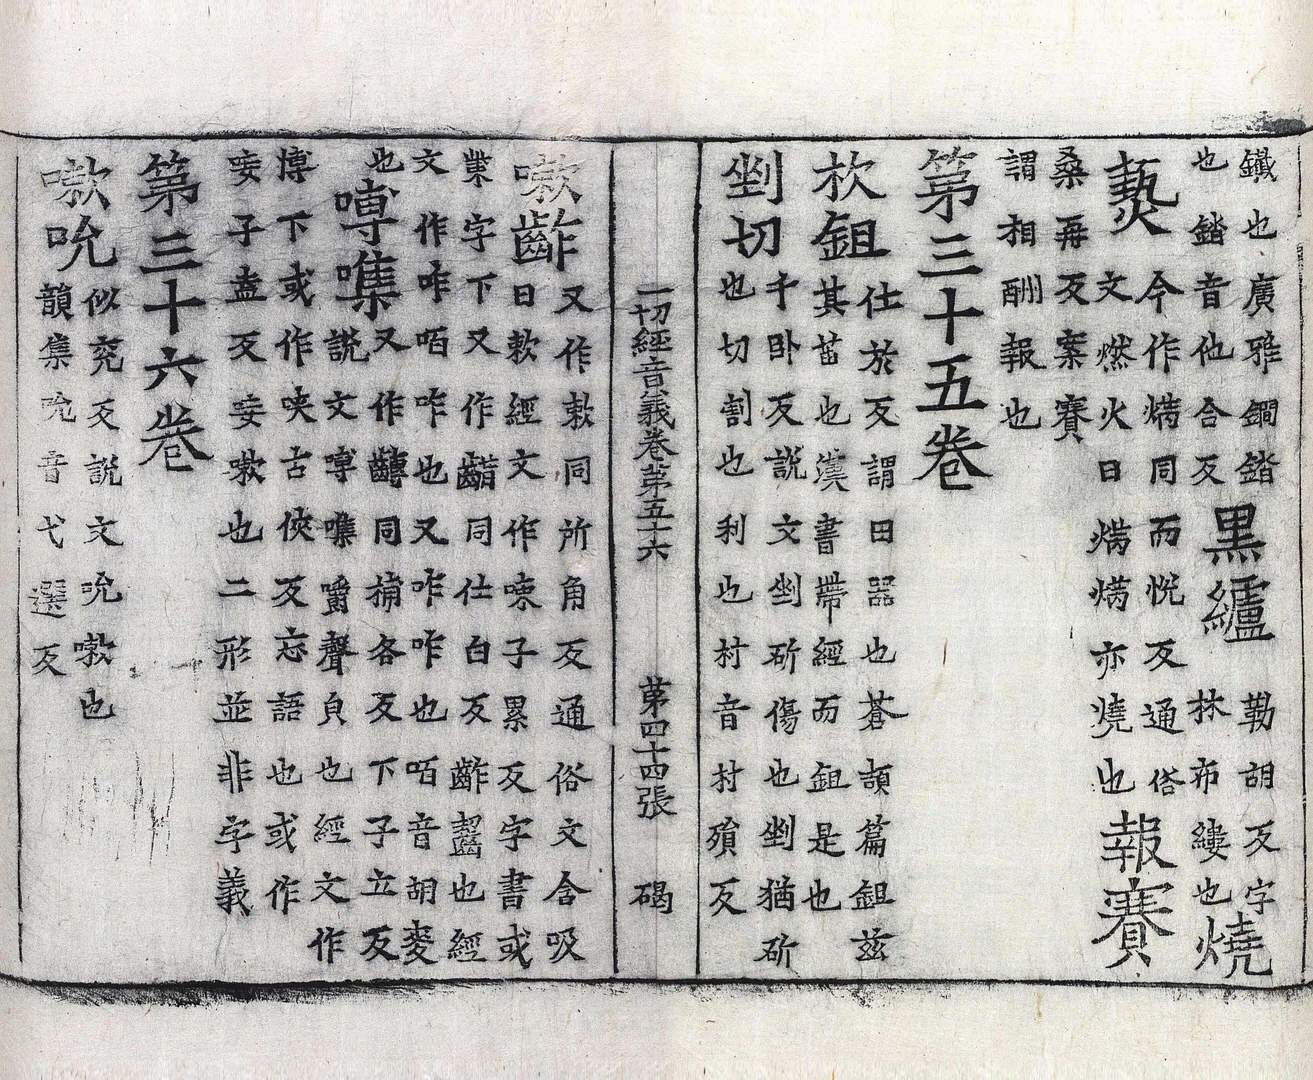 鐵也廣雅鐧錔
也錔音他合反黑纑勒胡反字
林布縷也燒
爇今作㷶同而悅反通俗
文燃火曰㷶㷶亦燒也報賽
桑再反案賽
謂相酬報也
第三十五卷
杴鉏仕於反謂田器也蒼頡篇鉏茲
其苗也漢書帶經而鉏是也
剉切千卧反說文剉斫傷也剉猶斫
也切割也利也村音村殞反
一切經音義卷第五十六 第四十四張 碣
嗽齰又作欶同所角反通俗文含吸
曰欶經文作㖩子累反字書或
作字下又作齰同仕白反齰齧也經
文作咋咟咋也又咋咋也咟音胡麥
也噂噍又作同補各反下子立反
說文噂噍嚼聲皃也經文作
博下或作唊古俠反忘語也或作
唼子盍反唼嗽也二形並非字義
第三十六卷
嗽吮似兖反說文吮嗽也
韻集吮音弋選反